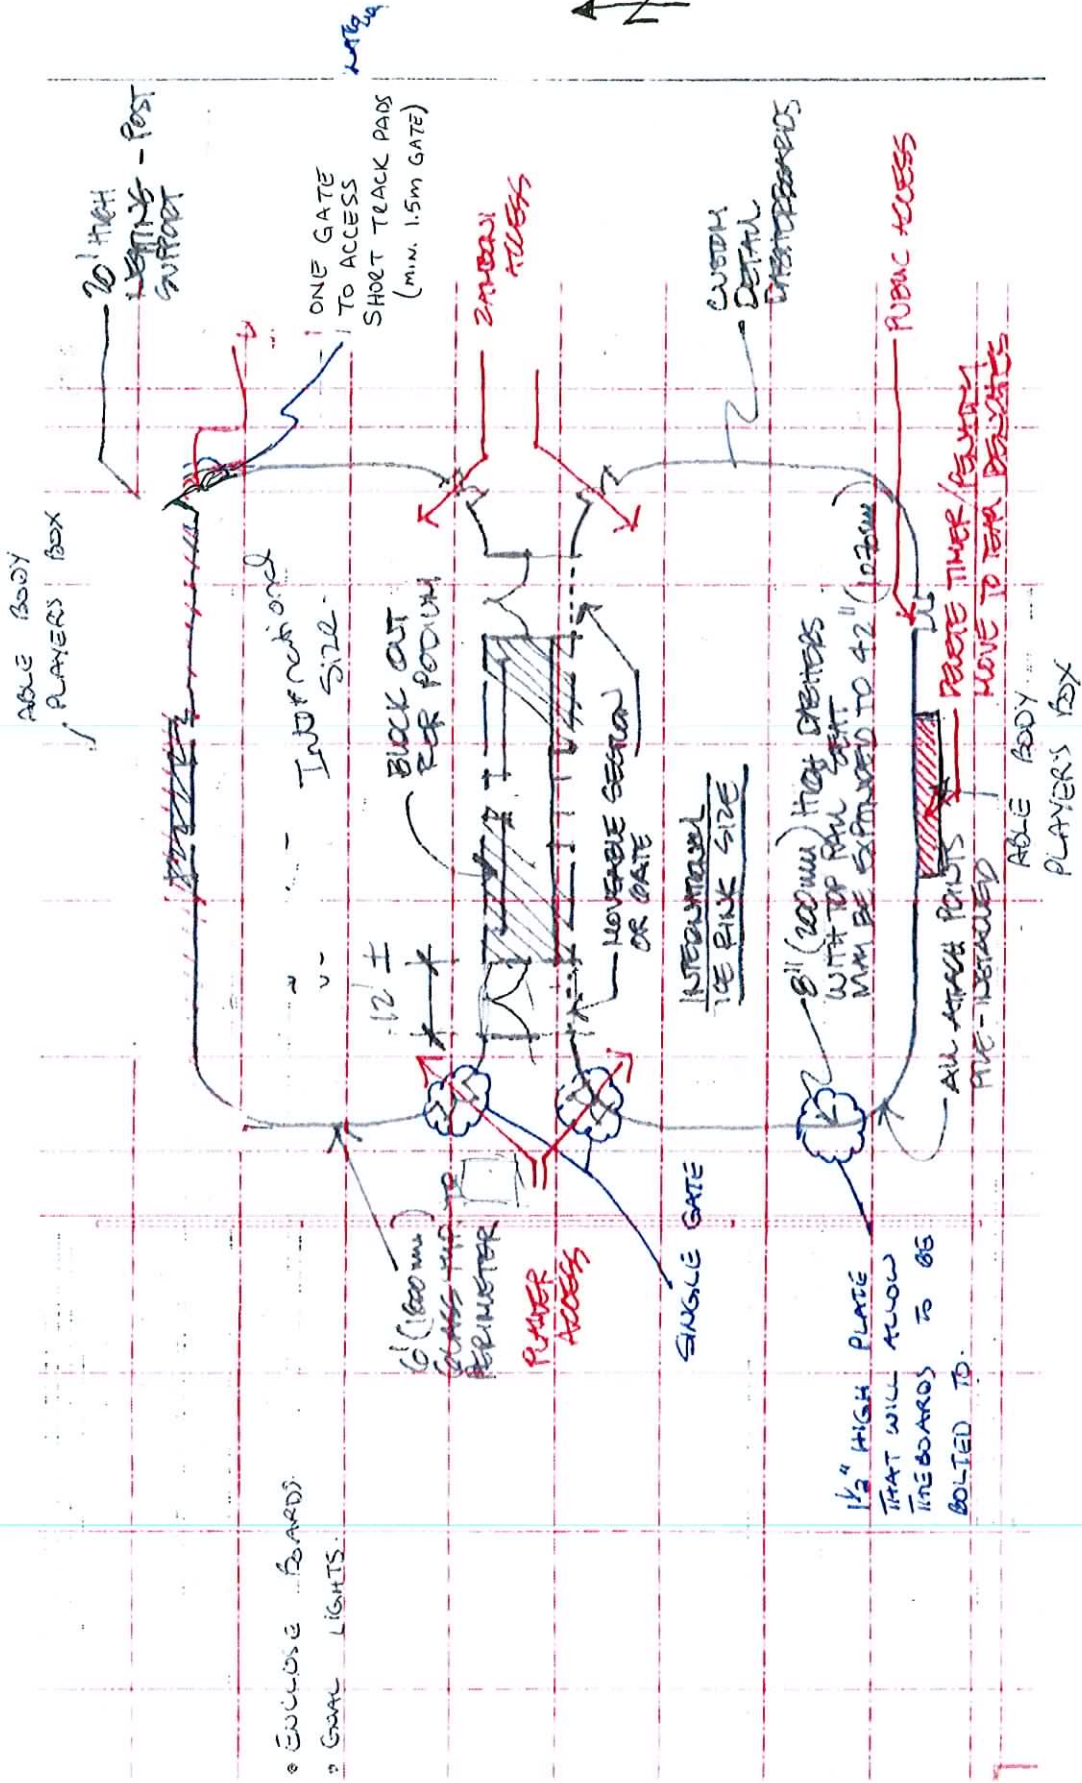 20' HIGH
NETTING - POST
SUPPORT
ABLE BODY
PLAYERS BOX
ONE GATE
TO ACCESS
SHORT TRACK PADS
(MIN. 1.5m GATE)
ZAMBONI
ACCESS
CUSTOM
DETAIL
DASHERBOARDS
PUBLIC ACCESS
International
Size
BLOCK OUT
FOR PODIUM
12' ±
MOVEABLE SECTION
OR GATE
INTERNATIONAL
ICE RINK SIZE
8" (200mm) HIGH DASHERS
WITH TOP RAIL THAT
MAY BE EXPANDED TO 42" (1070mm)
DELETE TIMER/PENALTY
MOVE TO TEAM BENCHES
ABLE BODY
PLAYER'S BOX
ALL ATTACH POINTS
PRE-INSTALLED
6' (1800mm)
PERIMETER
PLAYER
ACCESS
SINGLE GATE
1 1/2" HIGH PLATE
THAT WILL ALLOW
THE BOARDS TO BE
BOLTED TO.
• ENCLOSE BOARDS.
• GOAL LIGHTS.